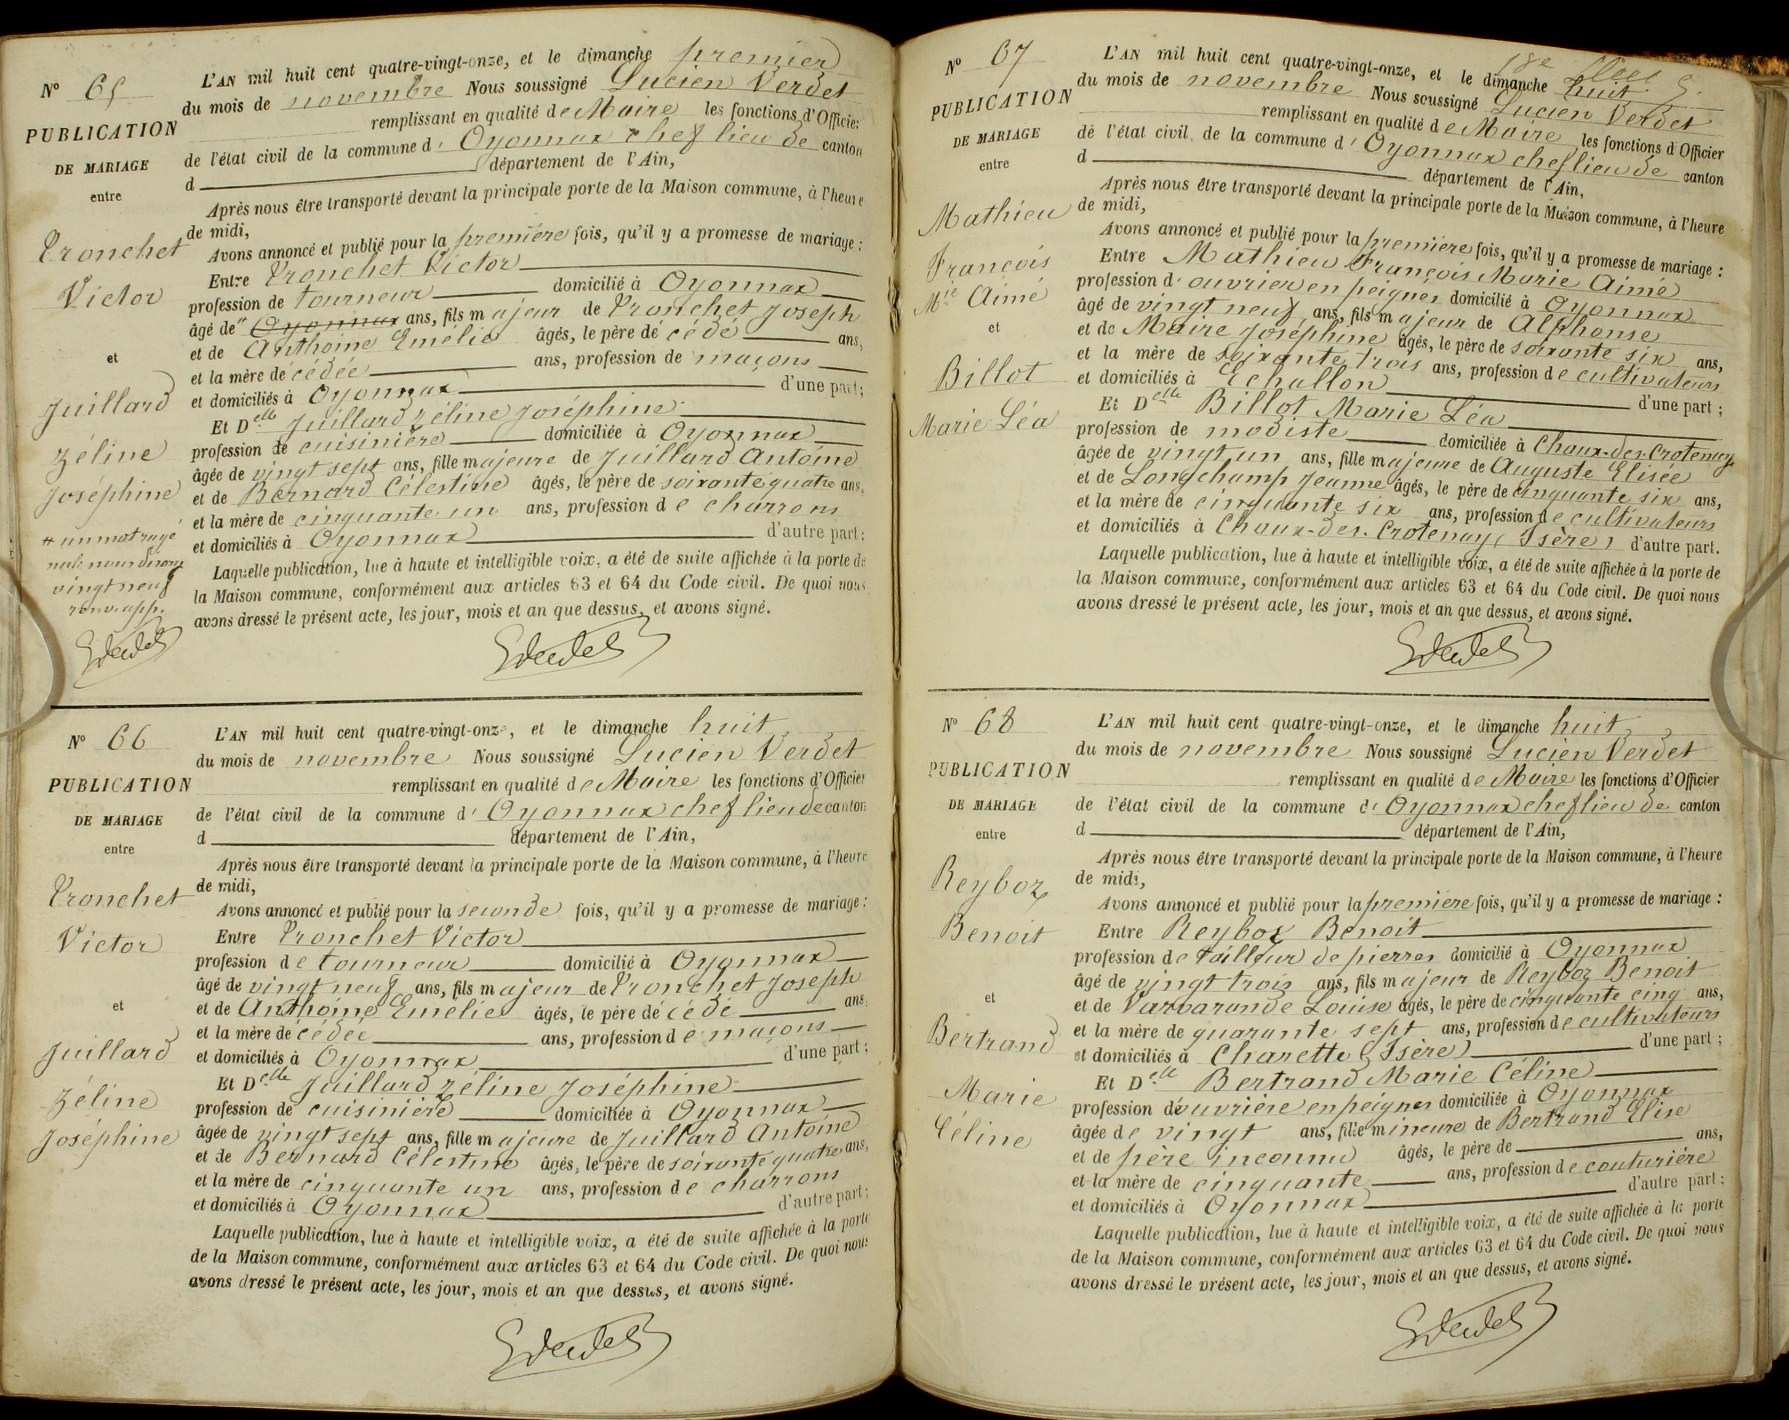 Nº 65
PUBLICATION
DE MARIAGE
entre
Pronchet
Victor
et
Juillard
Zéline
Joséphine
# un mot rayé
nul nous disons
vingt neuf
renv. app.
L'AN mil huit cent quatre-vingt-onze, et le dimanche premier
du mois de novembre Nous soussigné Lucien Verdet
remplissant en qualité de Maire les fonctions d'Officier
de l'état civil de la commune d' Oyonnax chef lieu de canton
d département de l'Ain,
Après nous être transporté devant la principale porte de la Maison commune, à l'heure
de midi,
Avons annoncé et publié pour la première fois, qu'il y a promesse de mariage :
Entre Pronchet Victor
profession de tourneur domicilié à Oyonnax
âgé de # Oyonnax ans, fils majeur de Pronchet Joseph
et de Anthoine Emélie âgés, le père décédé ans,
et la mère décédée ans, profession de maçons
et domiciliés à Oyonnax d'une part ;
Et Delle Juillard Zéline Joséphine
profession de cuisinière domiciliée à Oyonnax
âgée de vingt sept ans, fille majeure de Juillard Antoine
et de Bernard Célestine âgés, le père de soixante quatre ans,
et la mère de cinquante un ans, profession de charrons
et domiciliés à Oyonnax d'autre part ;
Laquelle publication, lue à haute et intelligible voix, a été de suite affichée à la porte de
la Maison commune, conformément aux articles 63 et 64 du Code civil. De quoi nous
avons dressé le présent acte, les jour, mois et an que dessus, et avons signé.
Nº 66
PUBLICATION
DE MARIAGE
entre
Pronchet
Victor
et
Juillard
Zéline
Joséphine
L'AN mil huit cent quatre-vingt-onze, et le dimanche huit
du mois de novembre Nous soussigné Lucien Verdet
remplissant en qualité de Maire les fonctions d'Officier
de l'état civil de la commune d' Oyonnax chef lieu de canton
d département de l'Ain,
Après nous être transporté devant la principale porte de la Maison commune, à l'heure
de midi,
Avons annoncé et publié pour la seconde fois, qu'il y a promesse de mariage :
Entre Pronchet Victor
profession de tourneur domicilié à Oyonnax
âgé de vingt neuf ans, fils majeur de Pronchet Joseph
et de Anthoine Emélie âgés, le père décédé ans,
et la mère décédée ans, profession de maçons
et domiciliés à Oyonnax d'une part ;
Et Delle Juillard Zéline Joséphine
profession de cuisinière domiciliée à Oyonnax
âgée de vingt sept ans, fille majeure de Juillard Antoine
et de Bernard Célestine âgés, le père de soixante quatre ans,
et la mère de cinquante un ans, profession de charrons
et domiciliés à Oyonnax d'autre part ;
Laquelle publication, lue à haute et intelligible voix, a été de suite affichée à la porte
de la Maison commune, conformément aux articles 63 et 64 du Code civil. De quoi nous
avons dressé le présent acte, les jour, mois et an que dessus, et avons signé.
Nº 67
PUBLICATION
DE MARIAGE
entre
Mathieu
François
Mie Aimé
et
Billot
Marie Léa
18e
L'AN mil huit cent quatre-vingt-onze, et le dimanche huit
du mois de novembre Nous soussigné Lucien Verdet
remplissant en qualité de Maire les fonctions d'Officier
de l'état civil de la commune d' Oyonnax chef lieu de canton
d département de l'Ain,
Après nous être transporté devant la principale porte de la Maison commune, à l'heure
de midi,
Avons annoncé et publié pour la première fois, qu'il y a promesse de mariage :
Entre Mathieu François Marie Aimé
profession d' ouvrier en peignes domicilié à Oyonnax
âgé de vingt neuf ans, fils majeur de Alphonse
et de Maire Joséphine âgés, le père de soixante six ans,
et la mère de soixante trois ans, profession de cultivateurs
et domiciliés à Echallon d'une part ;
Et Delle Billot Marie Léa
profession de modiste domiciliée à Chaux-des-Crotenay
âgée de vingt un ans, fille majeure de Auguste Elisée
et de Longchamp Jeanne âgés, le père de cinquante six ans,
et la mère de cinquante six ans, profession de cultivateurs
et domiciliés à Chaux-des-Crotenay (Isère) d'autre part.
Laquelle publication, lue à haute et intelligible voix, a été de suite affichée à la porte de
la Maison commune, conformément aux articles 63 et 64 du Code civil. De quoi nous
avons dressé le présent acte, les jour, mois et an que dessus, et avons signé.
Nº 68
PUBLICATION
DE MARIAGE
entre
Reyboz
Benoit
et
Bertrand
Marie
Céline
L'AN mil huit cent quatre-vingt-onze, et le dimanche huit
du mois de novembre Nous soussigné Lucien Verdet
remplissant en qualité de Maire les fonctions d'Officier
de l'état civil de la commune d' Oyonnax chef lieu de canton
d département de l'Ain,
Après nous être transporté devant la principale porte de la Maison commune, à l'heure
de midi,
Avons annoncé et publié pour la première fois, qu'il y a promesse de mariage :
Entre Reyboz Benoit
profession de tailleur de pierres domicilié à Oyonnax
âgé de vingt trois ans, fils majeur de Reyboz Benoit
et de Varvarande Louise âgés, le père de cinquante cinq ans,
et la mère de quarante sept ans, profession de cultivateurs
et domiciliés à Charette (Isère) d'une part ;
Et Delle Bertrand Marie Céline
profession d'ouvrière en peignes domiciliée à Oyonnax
âgée de vingt ans, fille mineure de Bertrand Elise
et de père inconnu âgés, le père de ans,
et la mère de cinquante ans, profession de couturière
et domiciliés à Oyonnax d'autre part ;
Laquelle publication, lue à haute et intelligible voix, a été de suite affichée à la porte
de la Maison commune, conformément aux articles 63 et 64 du Code civil. De quoi nous
avons dressé le présent acte, les jour, mois et an que dessus, et avons signé.